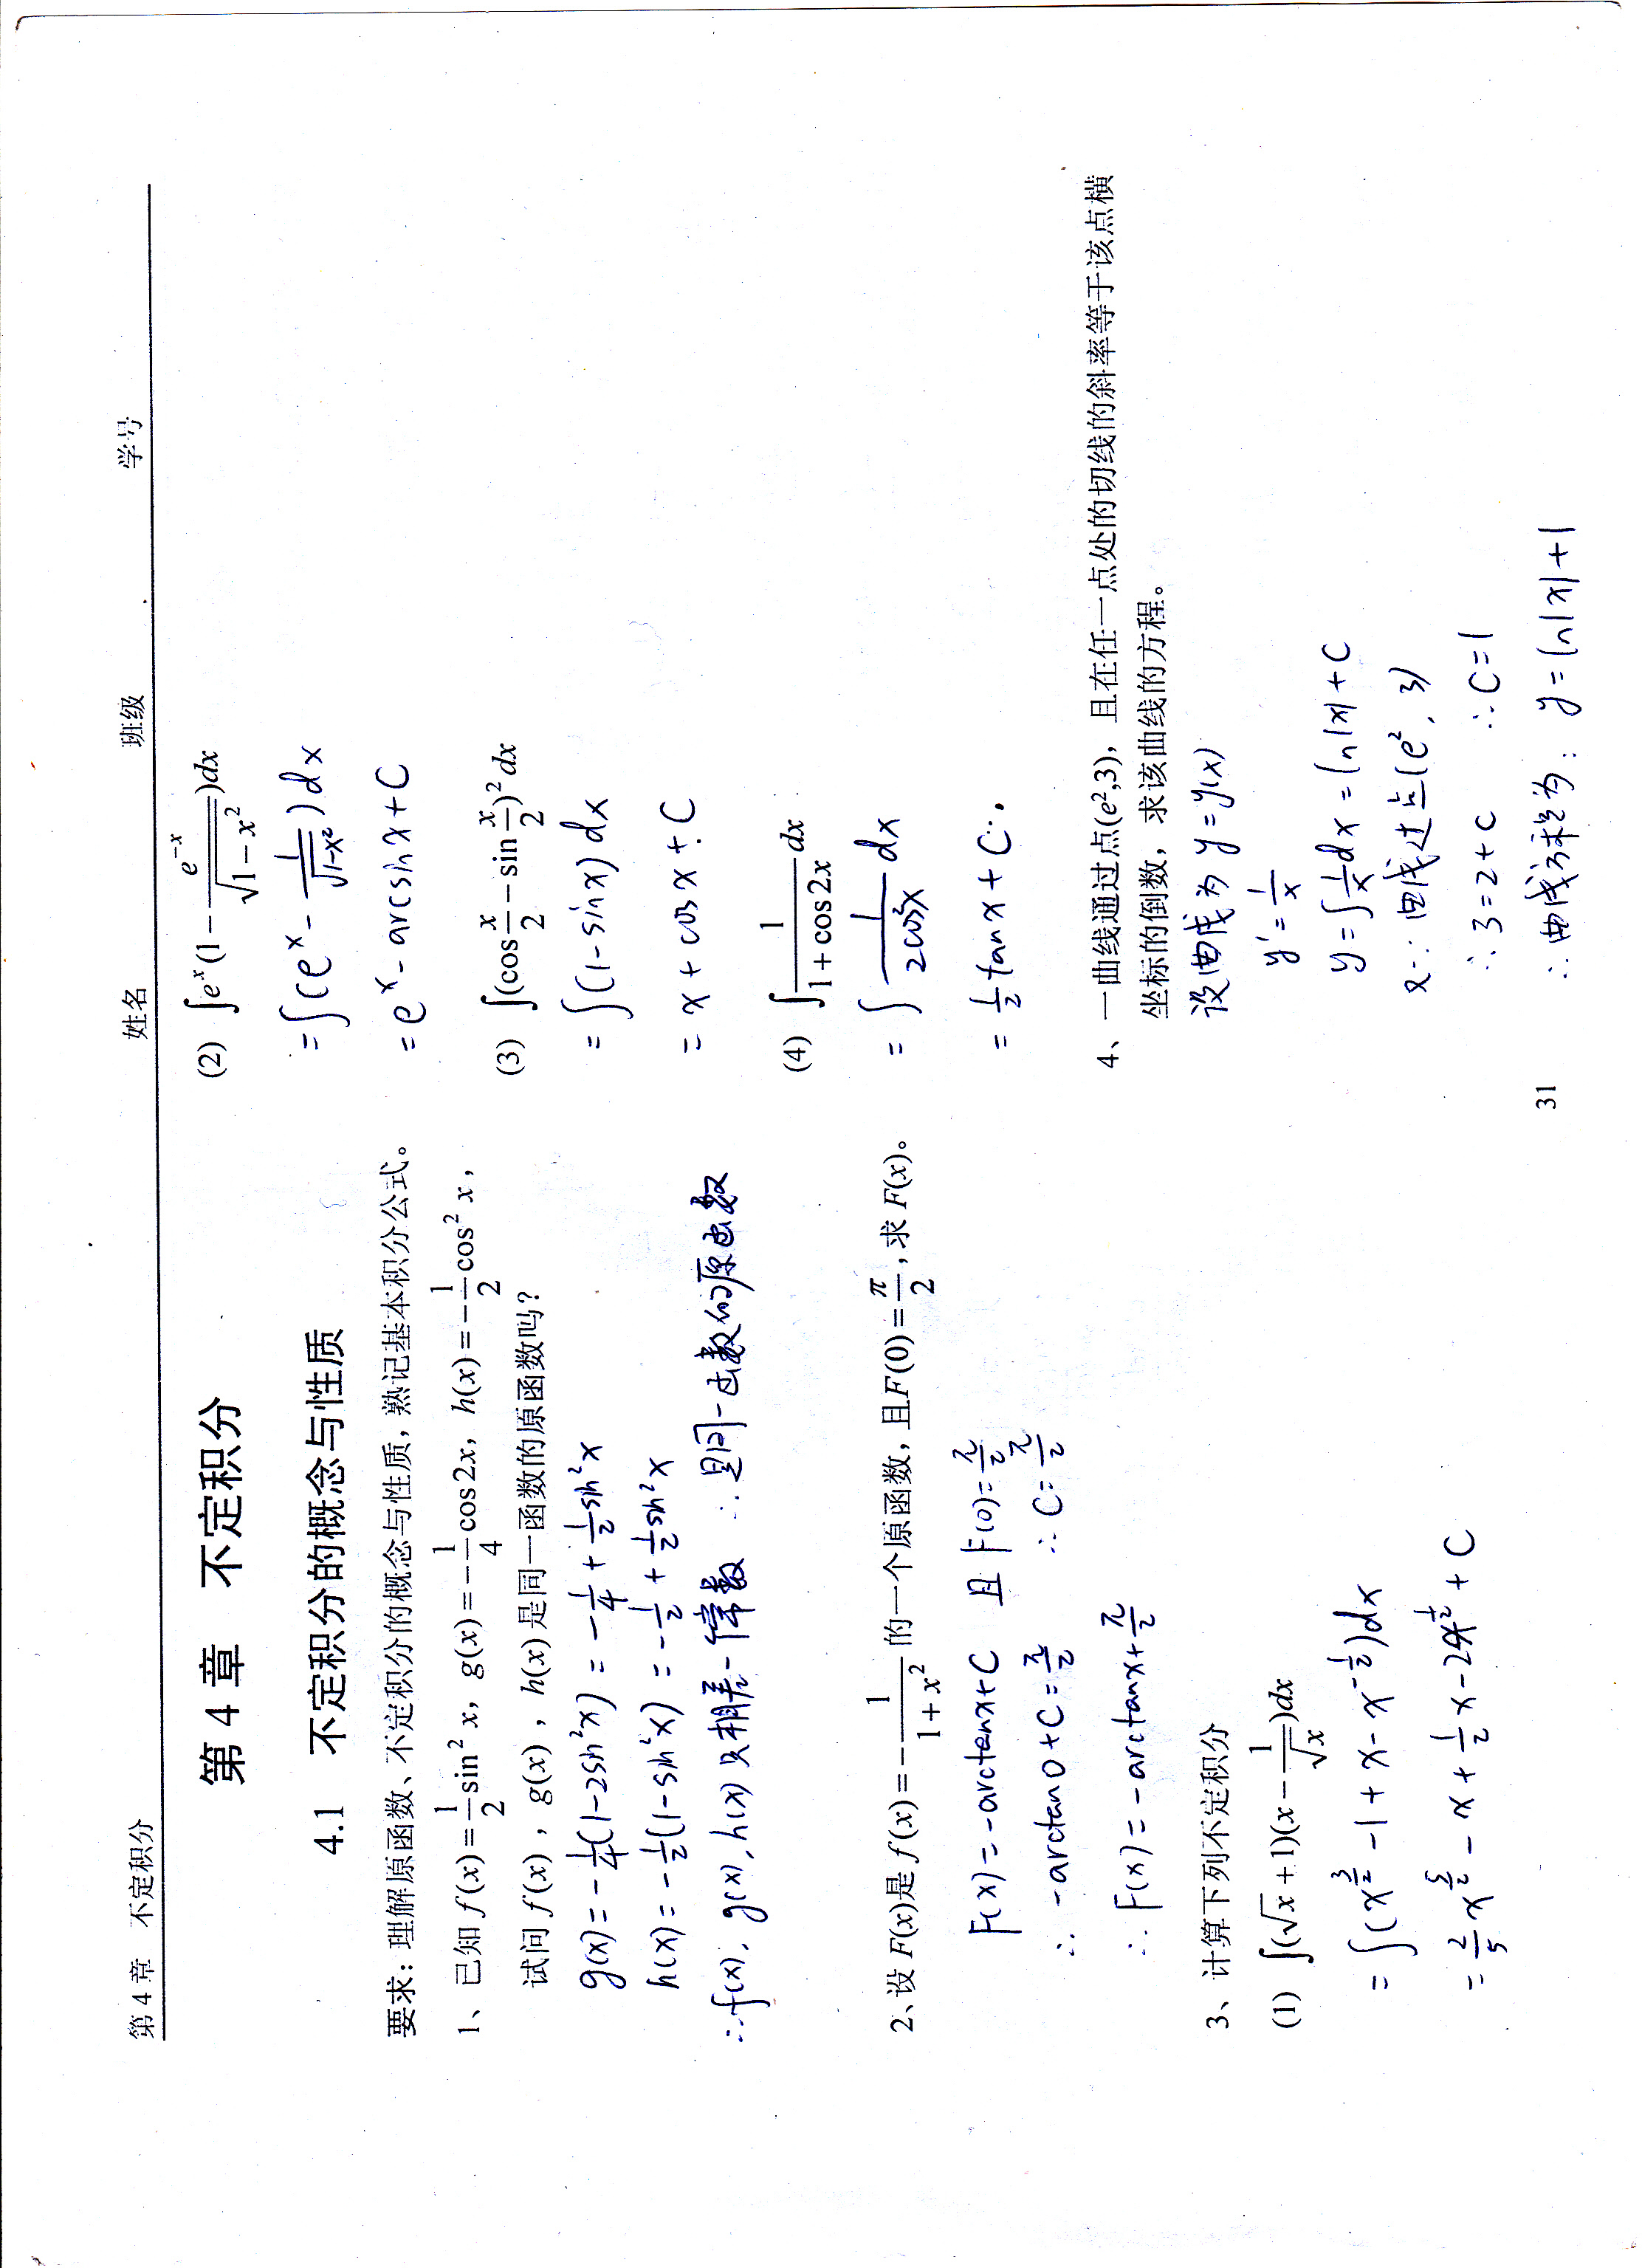 第 4 章　不定积分　姓名　班级　学号
第 4 章　不定积分
4.1　不定积分的概念与性质
要求：理解原函数、不定积分的概念与性质，熟记基本积分公式。
1、已知 f(x)=\frac{1}{2}sin² x, g(x)=-\frac{1}{4}cos 2x, h(x)=-\frac{1}{2}cos² x,
试问 f(x), g(x), h(x) 是同一函数的原函数吗?
g(x)=-\frac{1}{4}(1-2sin²x)=-\frac{1}{4}+\frac{1}{2}sin²x
h(x)=-\frac{1}{2}(1-sin²x)=-\frac{1}{2}+\frac{1}{2}sin²x
∴f(x), g(x), h(x) 只相差一个常数 ∴是同一函数的原函数
2、设 F(x)是 f(x)=-\frac{1}{1+x²}的一个原函数, 且F(0)=\frac{π}{2},求 F(x)。
F(x)=-arctanx+C 且 F(0)=\frac{π}{2}
∴ -arctan0+C=\frac{π}{2} ∴C=\frac{π}{2}
∴ F(x)=-arctanx+\frac{π}{2}
3、计算下列不定积分
(1) ∫(√x+1)(x-\frac{1}{√x})dx
=∫(x^{\frac{3}{2}}-1+x-x^{-\frac{1}{2}})dx
=\frac{2}{5}x^{\frac{5}{2}}-x+\frac{1}{2}x-2x^{\frac{1}{2}}+C
(2) ∫e^x(1-\frac{e^{-x}}{\sqrt{1-x²}})dx
=∫(e^x-\frac{1}{\sqrt{1-x²}})dx
=e^x-arcsinx+C
(3) ∫(cos\frac{x}{2}-sin\frac{x}{2})²dx
=∫(1-sinx)dx
=x+cosx+C
(4) ∫\frac{1}{1+cos2x}dx
=∫\frac{1}{2cos²x}dx
=\frac{1}{2}tanx+C.
4、一曲线通过点(e²,3)，且在任一点处的切线的斜率等于该点横
坐标的倒数，求该曲线的方程。
设曲线为 y=y(x)
y'=\frac{1}{x}
y=∫\frac{1}{x}dx=ln|x|+C
又∵曲线过点(e², 3)
∴3=2+C ∴C=1
∴曲线方程为: y=ln|x|+1
31